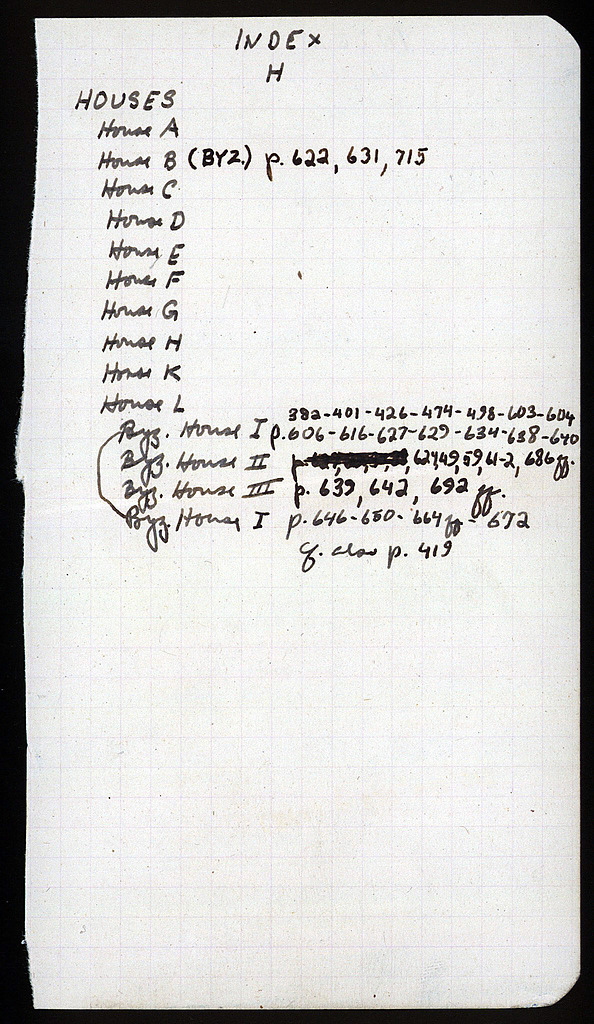 INDEX
H
HOUSES
House A
House B (BYZ.) p. 622, 631, 715
House C
House D
House E
House F
House G
House H
House K
House L
382-401-426-474-498-603-604
Byz. House I p. 606-616-627-629-634-638-640
Byz. House II p. 62749, 59, 61-2, 686 ff.
Byz. House III p. 639, 642, 692 ff.
Byz House I p. 646-650-664 ff - 672
cf. also p. 419